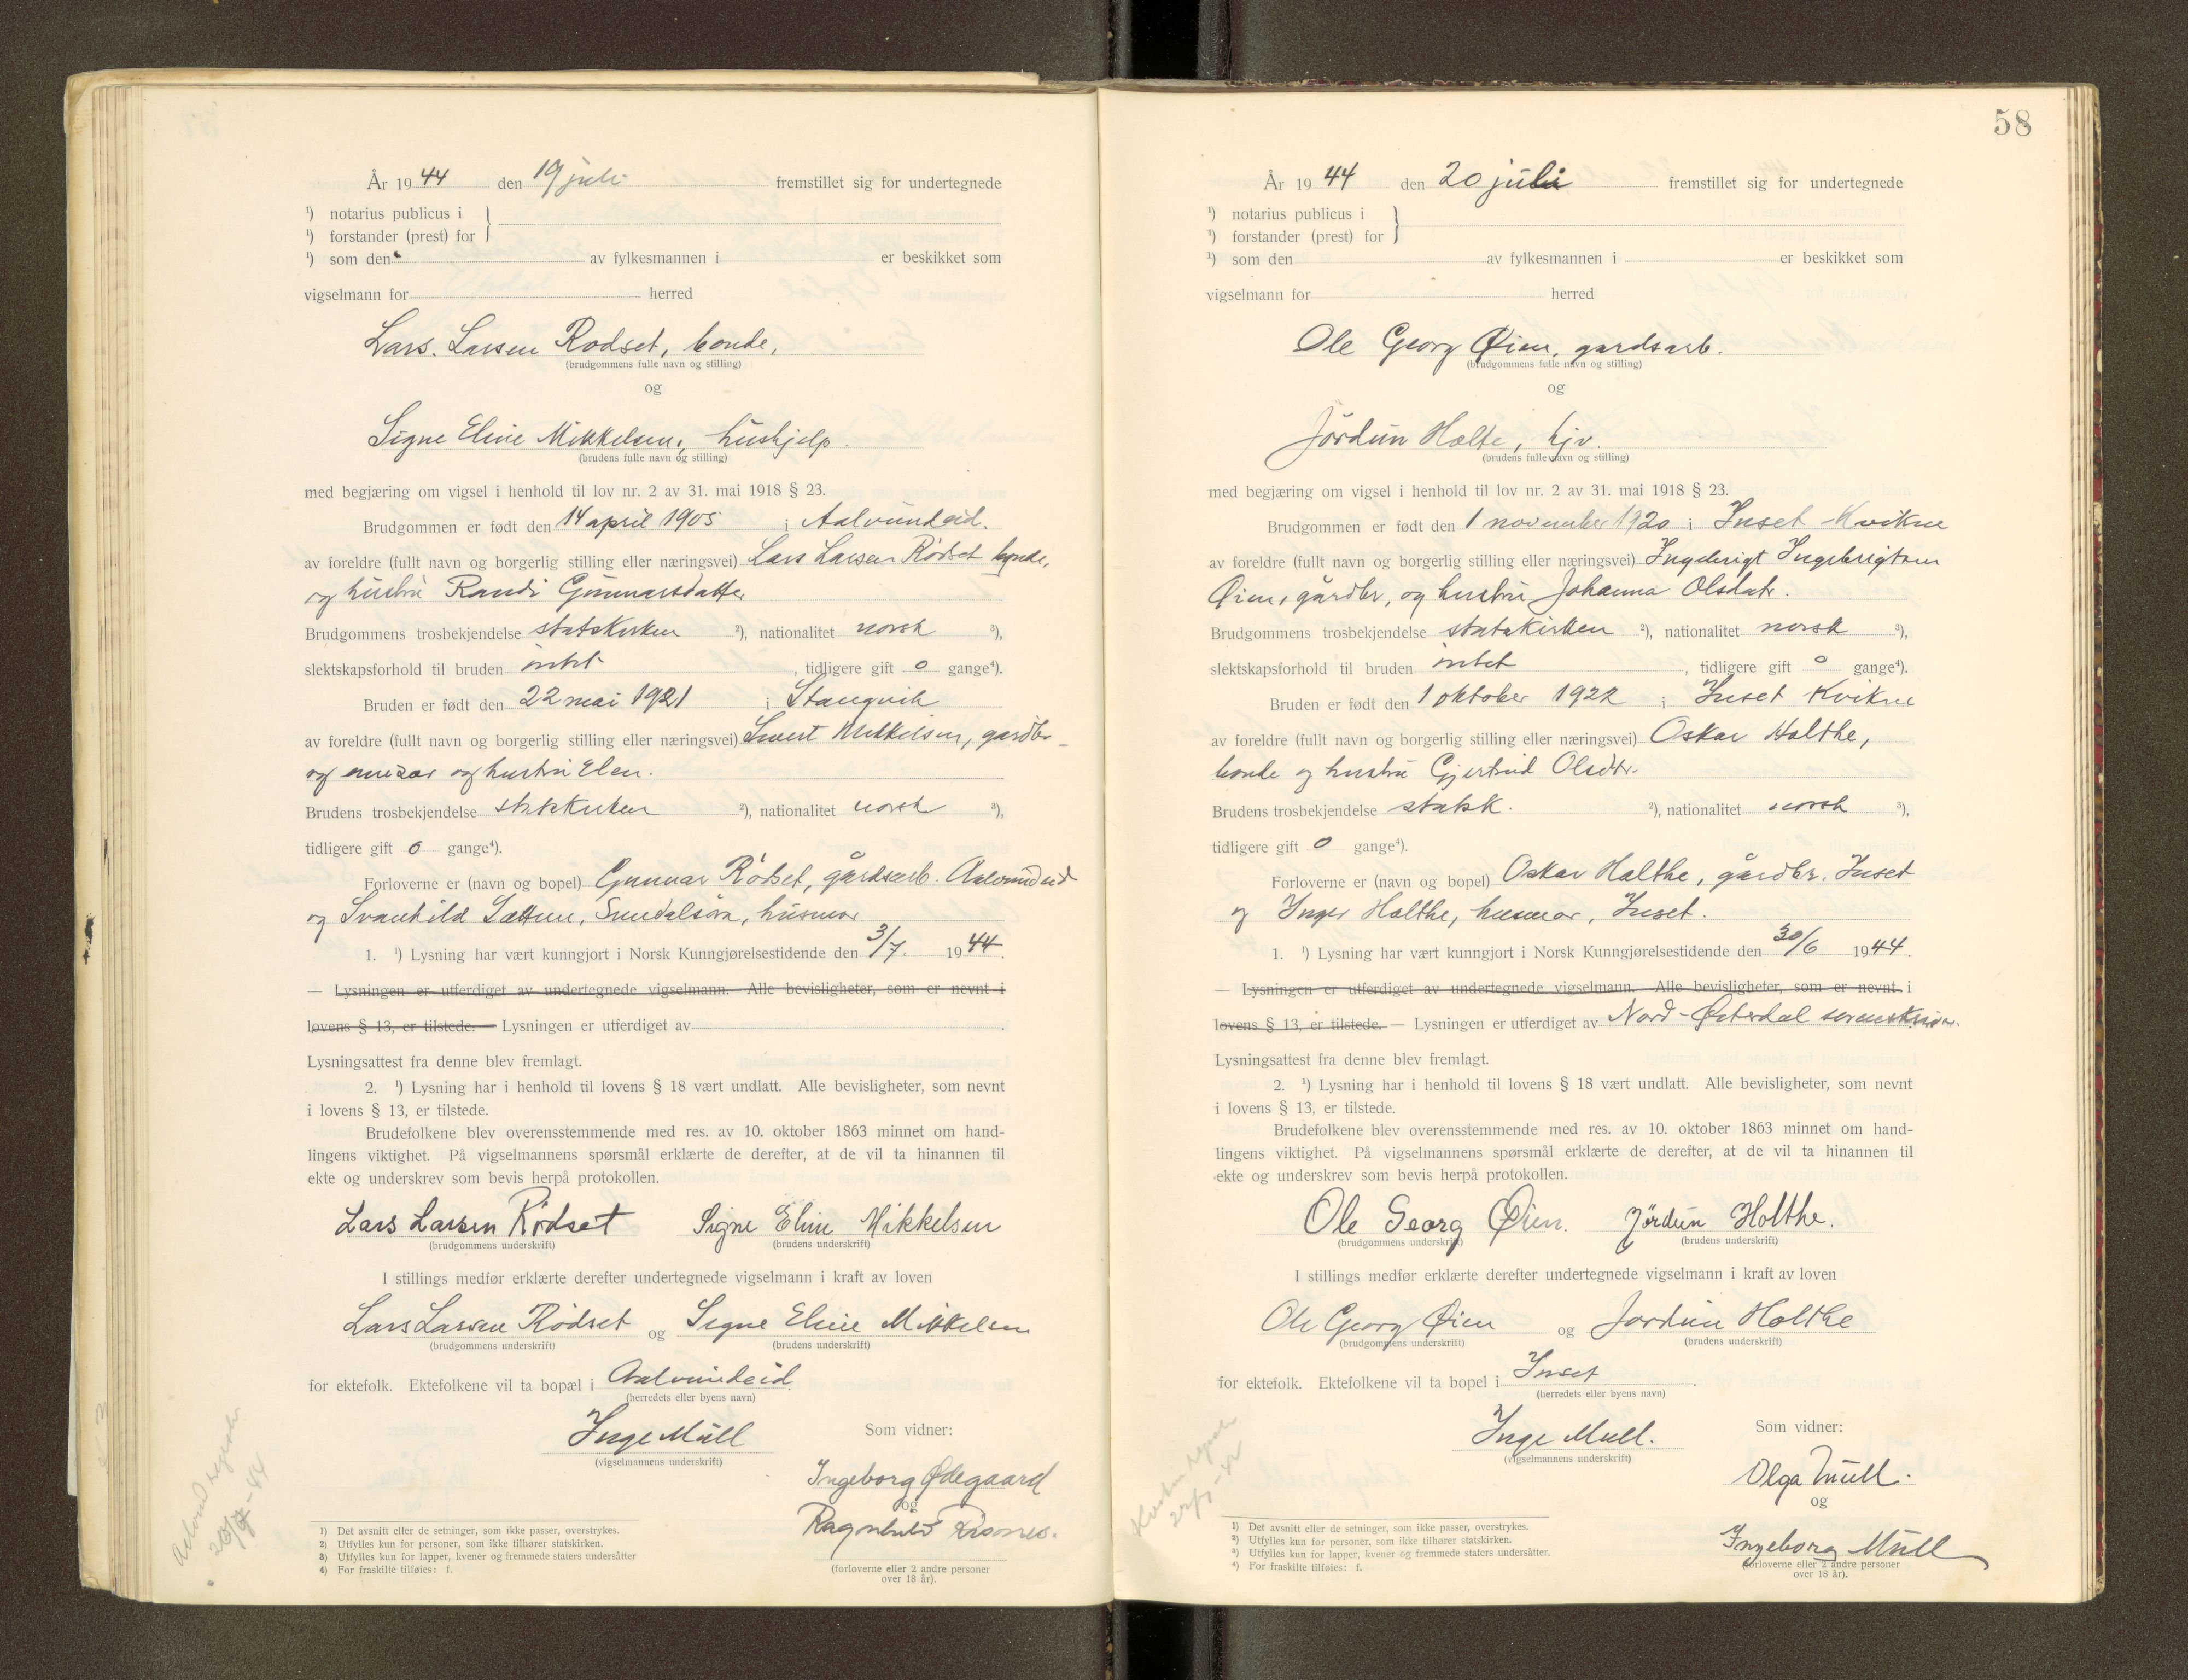 År 1944 den 19 juli fremstillet sig for undertegnede
¹) notarius publicus i
¹) forstander (prest) for
¹) som den av fylkesmannen i er beskikket som
vigselmann for herred
Lars. Larsen Rødset, bonde,
(brudgommens fulle navn og stilling)
og
Signe Eline Mikkelsen, hushjelp.
(brudens fulle navn og stilling)
med begjæring om vigsel i henhold til lov nr. 2 av 31. mai 1918 § 23.
Brudgommen er født den 14 april 1905 i Aalvundeid.
av foreldre (fullt navn og borgerlig stilling eller næringsvei) Lars Larsen Rødset bonde,
og hustru Randi Gunnarsdatter
Brudgommens trosbekjendelse statskirken ²), nationalitet norsk ³),
slektskapsforhold til bruden intet, tidligere gift 0 gange⁴).
Bruden er født den 22 mai 1921 i Stangvik
av foreldre (fullt navn og borgerlig stilling eller næringsvei) Sivert Mikkelsen, gardbr
og og hustru Elen.
Brudens trosbekjendelse statskirken ²), nationalitet norsk ³),
tidligere gift 0 gange⁴).
Forloverne er (navn og bopel) Gunnar Rødset, gårdsarb. Aalvundeid
og Svanhild Sættem, Sundalsøra, husmor
1. ¹) Lysning har vært kunngjort i Norsk Kunngjørelsestidende den 3/7. 1944.
— Lysningen er utferdiget av undertegnede vigselmann. Alle bevisligheter, som er nevnt i
lovens § 13, er tilstede. — Lysningen er utferdiget av .
Lysningsattest fra denne blev fremlagt.
2. ¹) Lysning har i henhold til lovens § 18 vært undlatt. Alle bevisligheter, som nevnt
i lovens § 13, er tilstede.
Brudefolkene blev overensstemmende med res. av 10. oktober 1863 minnet om hand-
lingens viktighet. På vigselmannens spørsmål erklærte de derefter, at de vil ta hinannen til
ekte og underskrev som bevis herpå protokollen.
Lars Larsen Rødset Signe Eline Mikkelsen
(brudgommens underskrift) (brudens underskrift)
I stillings medfør erklærte derefter undertegnede vigselmann i kraft av loven
Lars Larsen Rødset og Signe Eline Mikkelsen
(brudgommens underskrift) (brudens underskrift)
for ektefolk. Ektefolkene vil ta bopæl i Aalvundeid
(herredets eller byens navn)
Inge Mull Som vidner:
(vigselmannens underskrift)
Ingeborg Ødegaard
og
Ragnhild Risnes.
(forloverne eller 2 andre personer
over 18 år).
1) Det avsnitt eller de setninger, som ikke passer, overstrykes.
2) Utfylles kun for personer, som ikke tilhører statskirken.
3) Utfylles kun for lapper, kvener og fremmede staters undersåtter
4) For fraskilte tilføies: f.
58
År 1944 den 20 juli fremstillet sig for undertegnede
¹) notarius publicus i
¹) forstander (prest) for
¹) som den av fylkesmannen i er beskikket som
vigselmann for herred
Ole Georg Øien, gardsarb.
(brudgommens fulle navn og stilling)
og
Jördun Holte, hjv.
(brudens fulle navn og stilling)
med begjæring om vigsel i henhold til lov nr. 2 av 31. mai 1918 § 23.
Brudgommen er født den 1 november 1920 i Inset Kvikne
av foreldre (fullt navn og borgerlig stilling eller næringsvei) Ingebrigt Ingebrigtsen
Øien, gårdbr, og hustru Johanna Olsdatr.
Brudgommens trosbekjendelse statskirken ²), nationalitet norsk ³),
slektskapsforhold til bruden intet, tidligere gift 0 gange⁴).
Bruden er født den 1 oktober 1922 i Inset Kvikne
av foreldre (fullt navn og borgerlig stilling eller næringsvei) Oskar Holthe,
bonde og hustru Gjertrud Olsdtr.
Brudens trosbekjendelse statsk. ²), nationalitet norsk ³),
tidligere gift 0 gange⁴).
Forloverne er (navn og bopel) Oskar Holthe, gårdbr. Inset
og Inger Holthe, husmor, Inset.
1. ¹) Lysning har vært kunngjort i Norsk Kunngjørelsestidende den 30/6 1944.
— Lysningen er utferdiget av undertegnede vigselmann. Alle bevisligheter, som er nevnt i
lovens § 13, er tilstede. — Lysningen er utferdiget av Nord-Østerdal sorenskriver.
Lysningsattest fra denne blev fremlagt.
2. ¹) Lysning har i henhold til lovens § 18 vært undlatt. Alle bevisligheter, som nevnt
i lovens § 13, er tilstede.
Brudefolkene blev overensstemmende med res. av 10. oktober 1863 minnet om hand-
lingens viktighet. På vigselmannens spørsmål erklærte de derefter, at de vil ta hinannen til
ekte og underskrev som bevis herpå protokollen.
Ole Georg Øien. Jördun Holthe.
(brudgommens underskrift) (brudens underskrift)
I stillings medfør erklærte derefter undertegnede vigselmann i kraft av loven
Ole Georg Øien og Jordun Holthe
(brudgommens underskrift) (brudens underskrift)
for ektefolk. Ektefolkene vil ta bopel i Inset.
(herredets eller byens navn)
Inge Mull. Som vidner:
(vigselmannens underskrift)
Olga Mull.
og
Ingeborg Mull
(forloverne eller 2 andre personer
over 18 år).
1) Det avsnitt eller de setninger, som ikke passer, overstrykes.
2) Utfylles kun for personer, som ikke tilhører statskirken.
3) Utfylles kun for lapper, kvener og fremmede staters undersåtter.
4) For fraskilte tilføies: f.